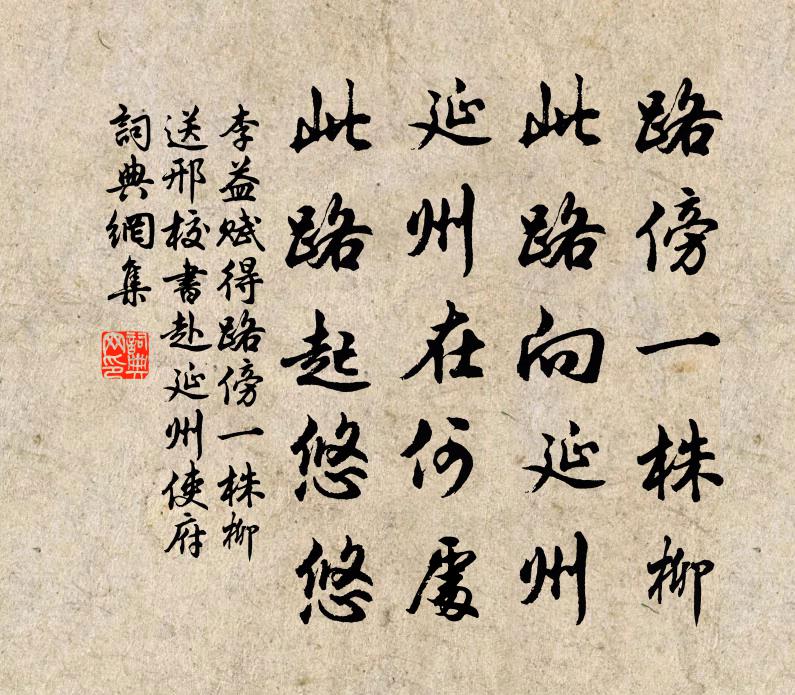 路傍一株柳
此路向延州
延州在何處
此路起悠悠
李益賦得路傍一株柳
送邢校書赴延州使府
詞典網集
詞典網印